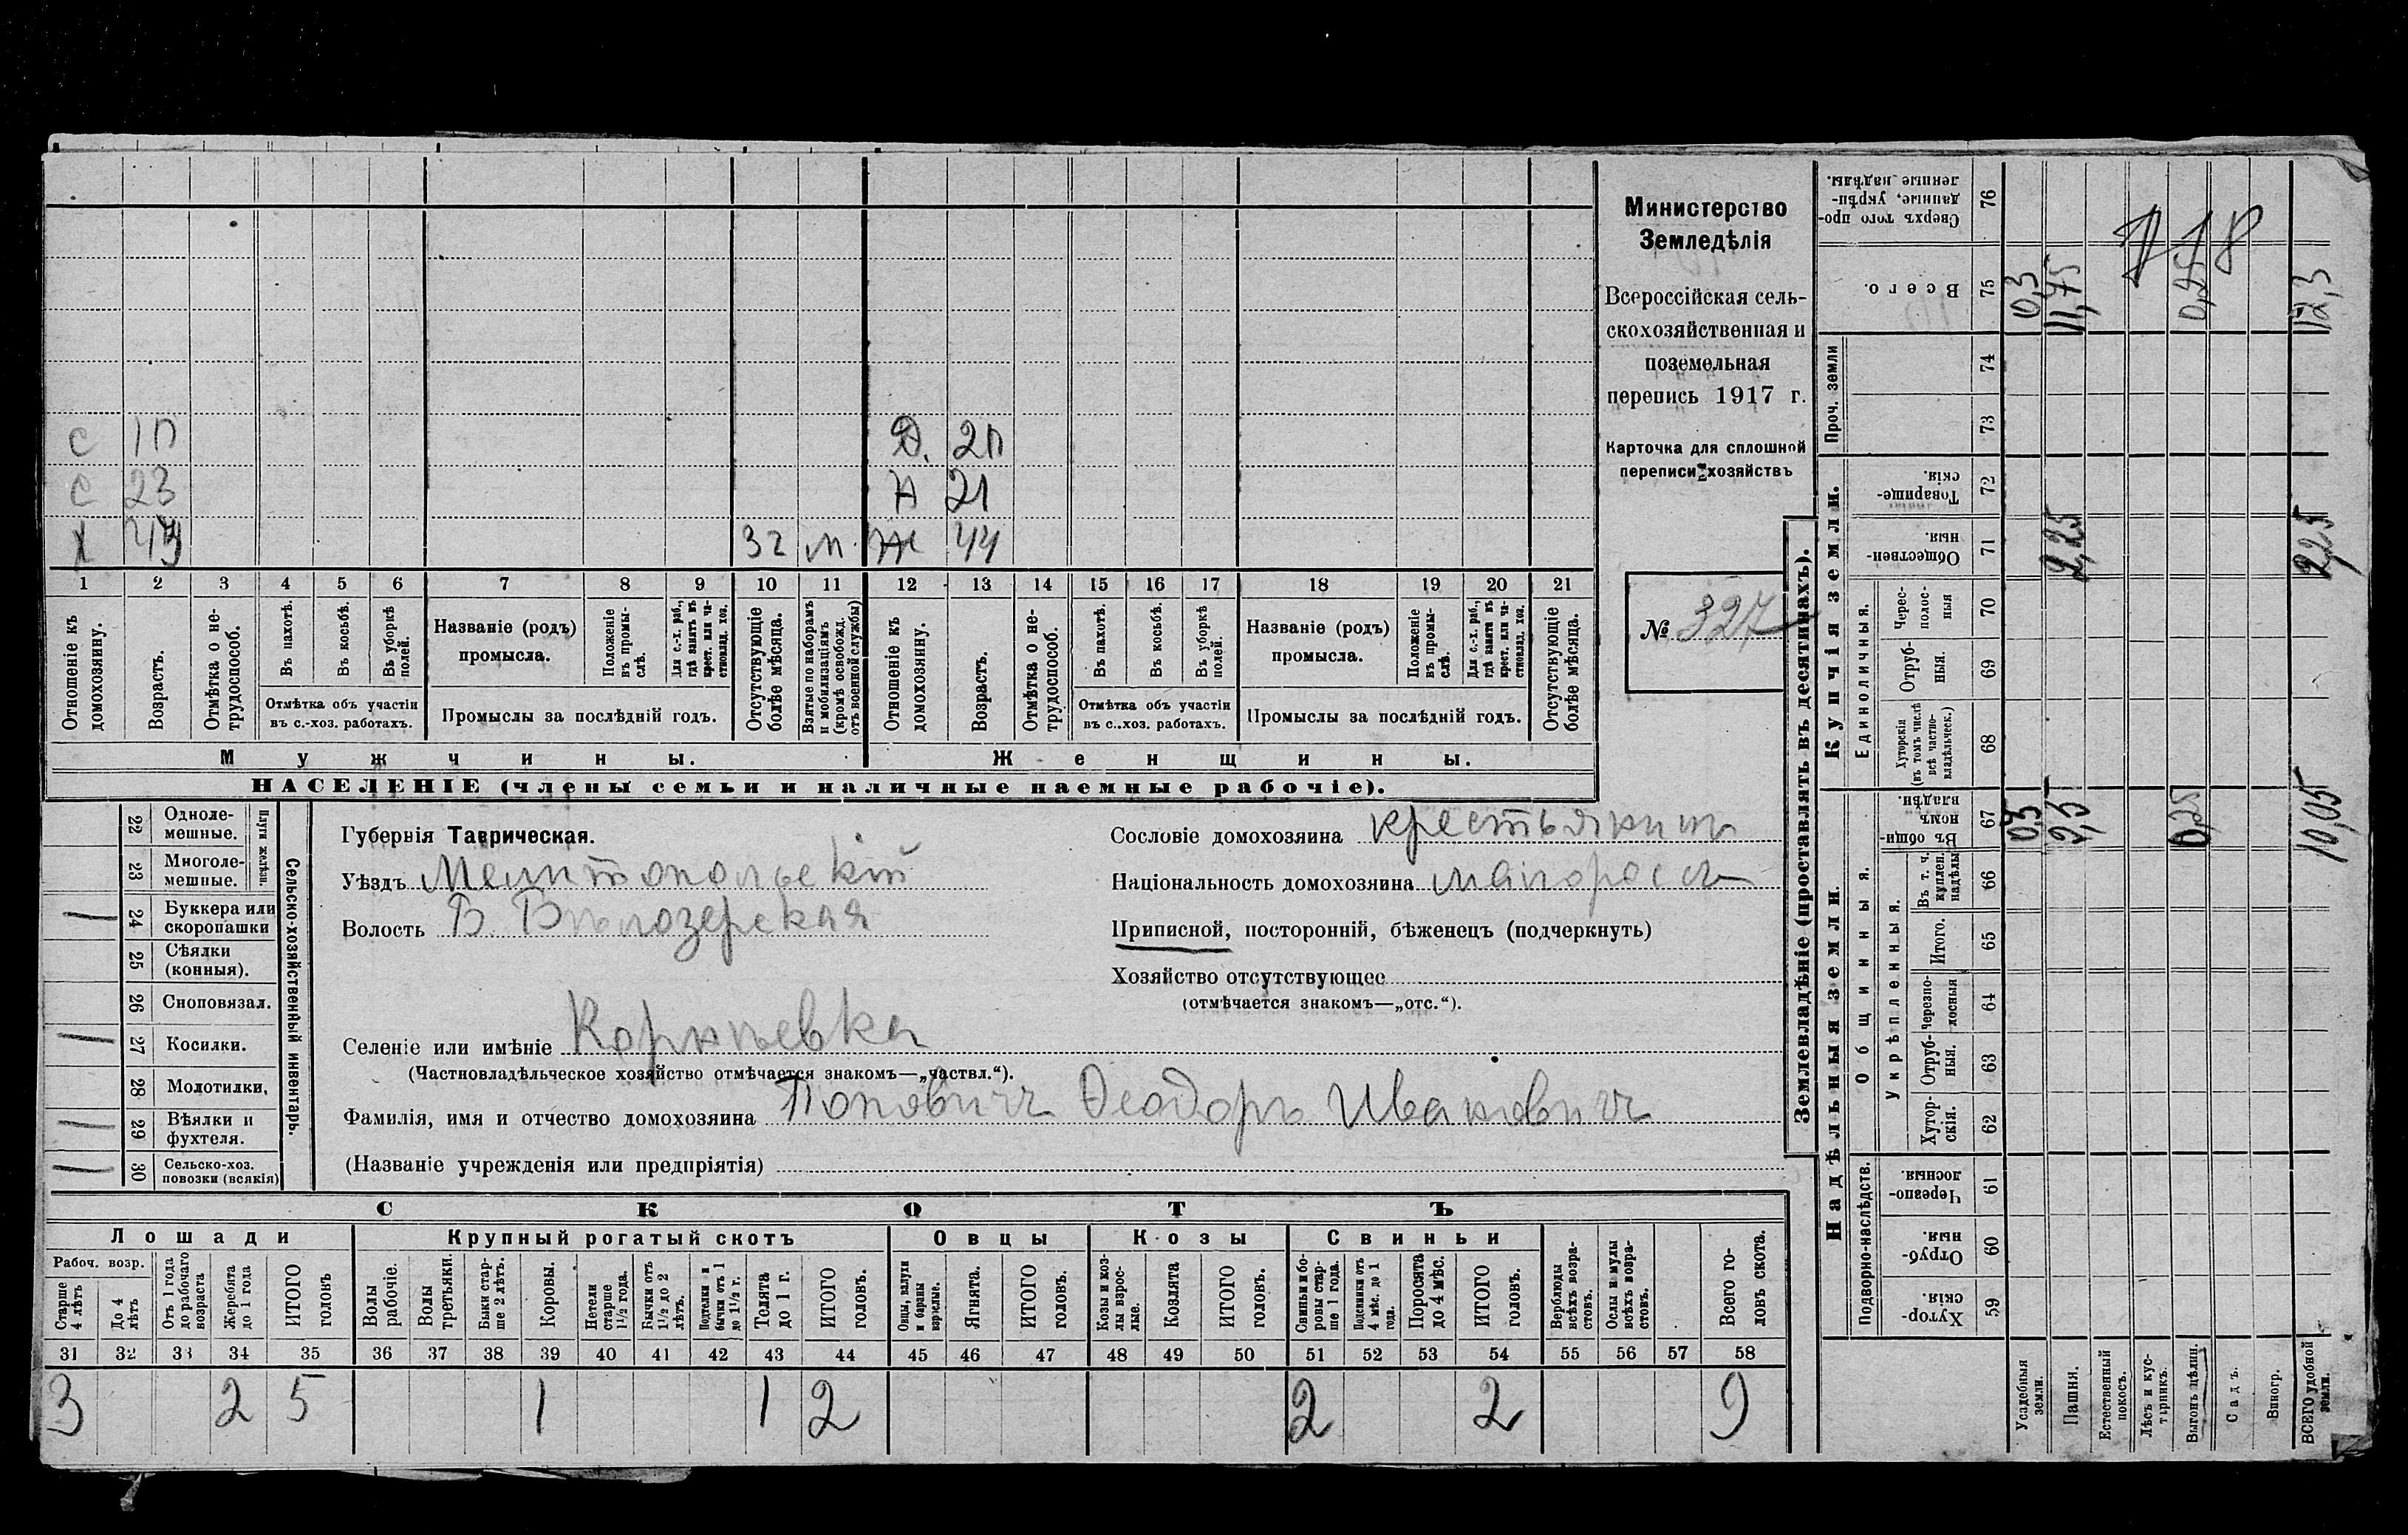 С 1п Д. 2п
С 23 Н 21
Х 32 м. Ж 44
1 2 3 4 5 6 7 8 9 10 11 12 13 14 15 16 17 18 19 20 21
Отношеніе къ домохозяину.
Возрастъ.
Отмѣтка о не-
трудоспособ.
Въ пахотѣ.
Въ косьбѣ.
Въ уборкѣ полей.
Отмѣтка объ участіи
въ с.-хоз. работахъ.
Названіе (родъ)
промысла.
Положеніе въ промы-
слѣ.
Для с.-х. раб., гдѣ занятъ въ крест. или ча-
стновлад. хоз.
Промыслы за послѣдній годъ.
Отсутствующіе болѣе мѣсяца.
Взятые по наборамъ и мобилизаціямъ (кромѣ освобожд. отъ военной службы)
Отношеніе къ домохозяину.
Возрастъ.
Отмѣтка о не-
трудоспособ.
Въ пахотѣ.
Въ косьбѣ.
Въ уборкѣ полей.
Отмѣтка объ участіи
въ с.-хоз. работахъ.
Названіе (родъ)
промысла.
Положеніе въ промы-
слѣ.
Для с.-х. раб., гдѣ занята въ крест. или ча-
стновлад. хоз.
Промыслы за послѣдній годъ.
Отсутствующіе болѣе мѣсяца.
Мужчины. Женщины.
НАСЕЛЕНІЕ (члены семьи и наличные наемные рабочіе).
Министерство
Земледѣлія
Всероссійская сель-
скохозяйственная и
поземельная
перепись 1917 г.
Карточка для сплошной
переписи хозяйствъ
№ 327
22 Одноле-
мешные.
23 Многоле-
мешные.
Плуги желѣзн.
1 24 Буккера или
скоропашки
25 Сѣялки
(конныя).
26 Сноповязал.
1 27 Косилки.
28 Молотилки.
1 29 Вѣялки и
фухтеля.
1 30 Сельско-хоз.
повозки (всякія)
Сельско-хозяйственный инвентарь.
Губернія Таврическая.
Уѣздъ Мелитопольскій
Волость Б. Бѣлозерская
Селеніе или имѣніе Корнѣевка
(Частновладѣльческое хозяйство отмѣчается знакомъ—„частвл.“).
Фамилія, имя и отчество домохозяина Поповичъ Ѳеодоръ Ивановичъ
(Названіе учрежденія или предпріятія)
Сословіе домохозяина крестьянинъ
Національность домохозяина малороссъ
Приписной, посторонній, бѣженецъ (подчеркнуть)
Хозяйство отсутствующее
(отмѣчается знакомъ—„отс.“).
СКОТЪ
Лошади Крупный рогатый скотъ Овцы Козы Свиньи
Рабоч. возр.
Старше 4 лѣтъ
До 4 лѣтъ
Отъ 1 года до рабочаго возраста
Жеребята до 1 года
ИТОГО головъ
Волы рабочіе.
Волы третьяки.
Быки стар-
ше 2 лѣтъ.
Коровы.
Нетели старше 1½ года.
Бычки отъ 1½ до 2 лѣтъ.
Подтелки и бычки отъ 1 до 1½ г.
Телята до 1 г.
ИТОГО головъ.
Овцы, валухи и бараны взрослые.
Ягнята.
ИТОГО головъ.
Козы и коз-
лы взрос-
лые.
Козлята
ИТОГО головъ.
Свиньи и бо-
ровы стар-
ше 1 года.
Подсвинки отъ 4 мѣс. до 1 года.
Поросята до 4 мѣс.
ИТОГО головъ.
Верблюды всѣхъ возра-
стовъ.
Ослы и мулы всѣхъ возра-
стовъ.
Всего го-
ловъ скота.
31 32 33 34 35 36 37 38 39 40 41 42 43 44 45 46 47 48 49 50 51 52 53 54 55 56 57 58
3 2 5 1 1 2 2 2 9
Землевладѣніе (проставлять въ десятинахъ).
Сверхъ того про-
данные, укрѣп-
ленные надѣлы. 76
Всего. 75 0,3 11,75 12,3
Проч. земли 74
73
Купчія земли.
Товарище-
скія. 72
Обществен-
ныя. 71 2,25 2,25
Единоличныя.
Черес-
полос-
ныя 70
Отруб-
ныя. 69
Хуторскія (въ томъ числѣ всѣ частно-
владѣльческ.) 68
Надѣльныя земли.
Общинныя.
Въ общи-
номъ владѣн. 67 0,3 9,5 0,25 10,05
Укрѣпленныя.
Въ т. ч. куплен. надѣлы 66
Итого. 65
Черезпо-
лосныя 64
Отруб-
ныя. 63
Хутор-
скія. 62
Подворно-наслѣдств.
Черезпо-
лосныя 61
Отруб-
ныя. 60
Хутор-
скія. 59
Усадебныя земли.
Пашня.
Естественный покосъ.
Лѣсъ и кус-
тарникъ.
Выгонъ цѣлин.
Садъ.
Виногр.
ВСЕГО удобной земли.